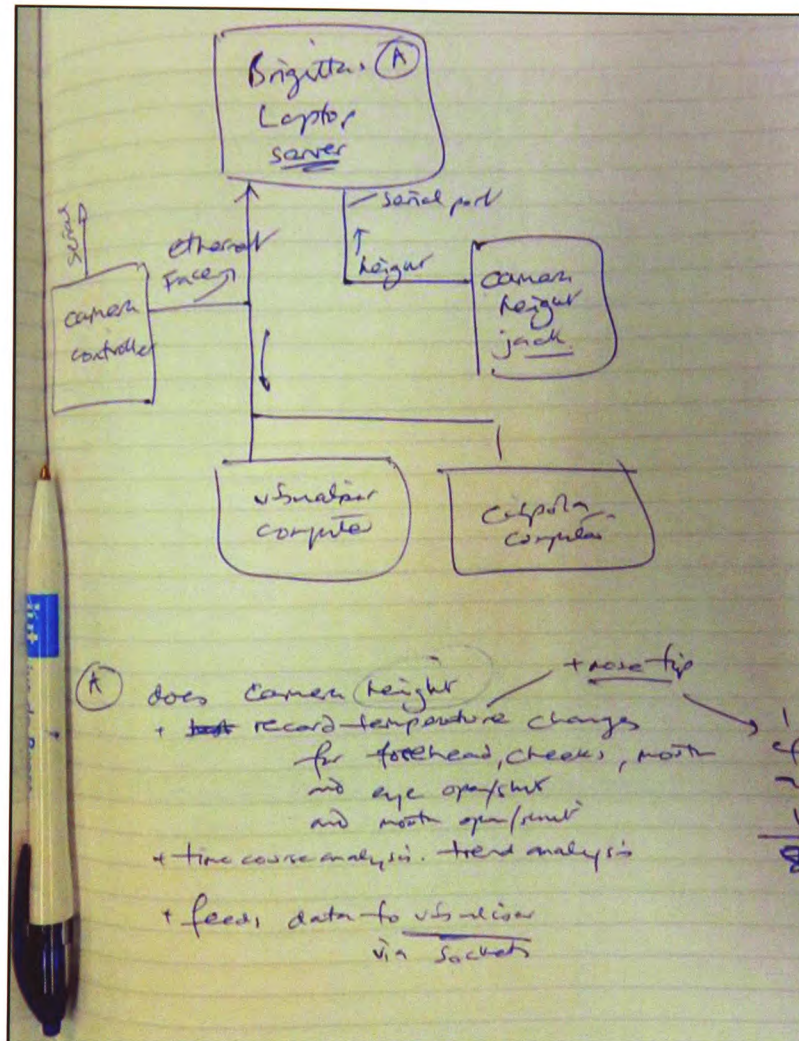 Brigitta's (A)
Laptop
server
serial port
serial
ethernet
Face
height
camera
controller
camera
height
jack.
visualiser
computer
computer
(A) does camera height
+ nose tip
+ record temperature changes
for forehead, cheeks, mouth
and eye open/shut
and mouth open/shut
+ time course analysis. trend analysis
+ feeds data to visualiser
via sockets